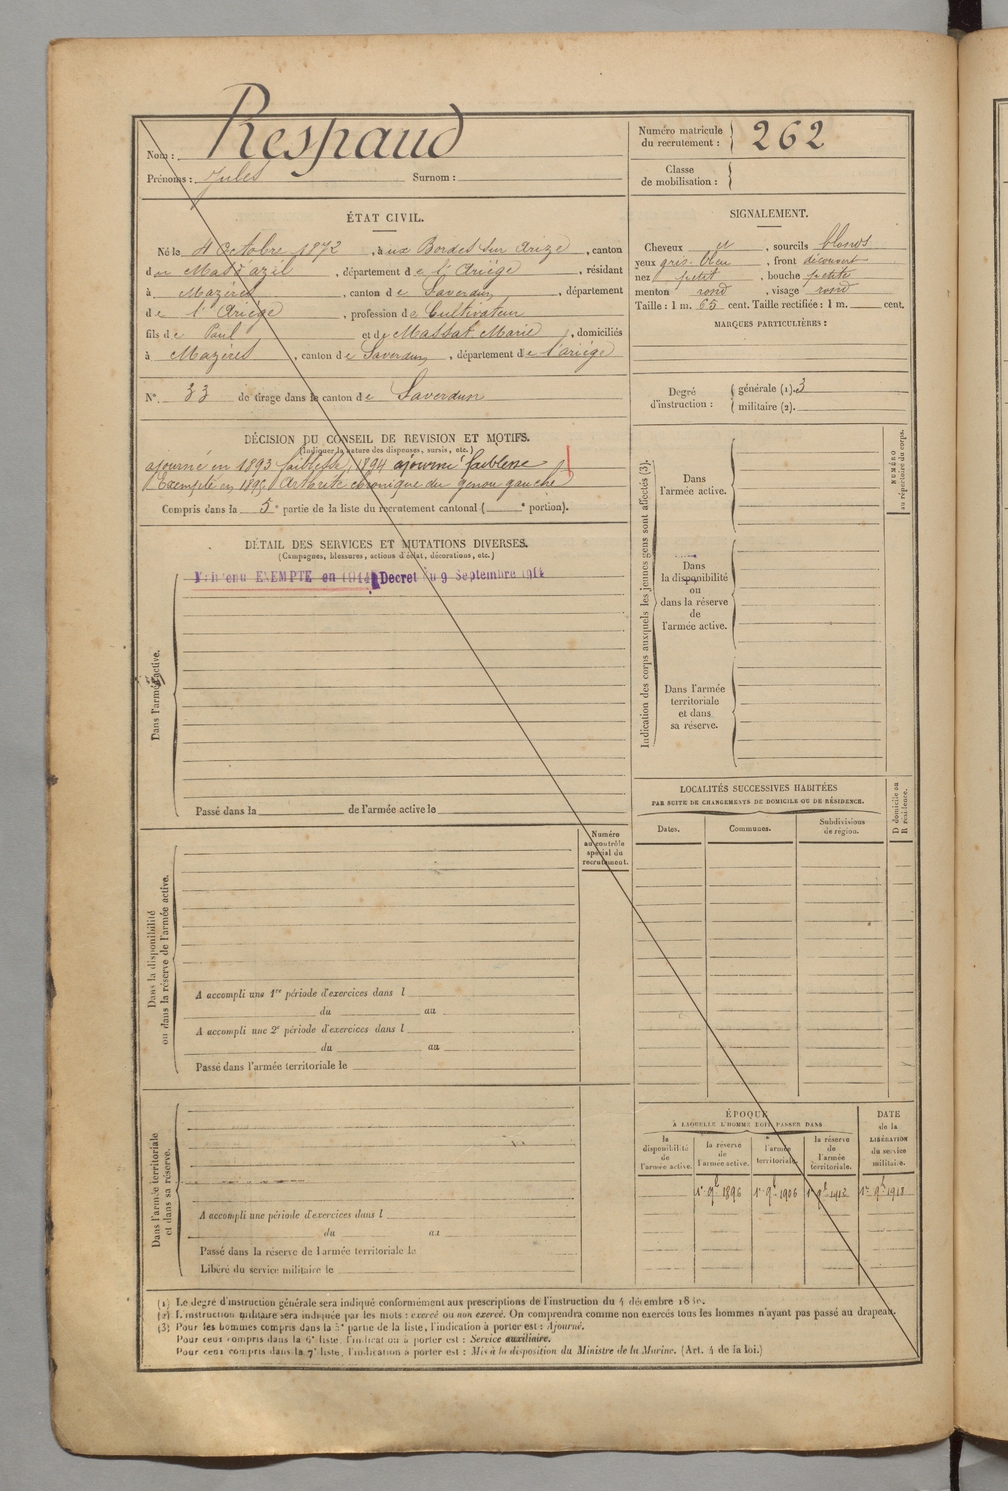 Nom : Respaud
Prénoms : Jules Surnom :
Numéro matricule du recrutement : 262
Classe de mobilisation :
ÉTAT CIVIL.
Né le 4 Octobre 1872, à aux Bordes sur Arize, canton
du Mas d'azil, département de l'Ariège, résidant
à Mazères, canton de Saverdun, département
de l'Ariège, profession de Cultivateur
fils de Paul et de Massat Marie, domiciliés
à Mazères, canton de Saverdun, département de l'ariège
N° 33 de tirage dans le canton de Saverdun
SIGNALEMENT.
Cheveux et, sourcils blonds
yeux gris-bleu, front découvert
nez petit, bouche petite
menton rond, visage rond
Taille : 1 m. 65 cent. Taille rectifiée : 1 m. cent.
MARQUES PARTICULIÈRES :
Degré d'instruction : générale (1). 3
militaire (2).
DÉCISION DU CONSEIL DE REVISION ET MOTIFS.
(Indiquer la nature des dispenses, sursis, etc.)
ajourné en 1893 faiblesse, 1894 ajourné faiblesse
Exempté en 1895 Arthrite chronique du genou gauche
Compris dans la 5e partie de la liste du recrutement cantonal ( e portion).
DÉTAIL DES SERVICES ET MUTATIONS DIVERSES.
(Campagnes, blessures, actions d'éclat, décorations, etc.)
Maintenu EXEMPTE en 1914 Decret du 9 Septembre 1914
Dans l'armée active.
Passé dans la de l'armée active le
Numéro au contrôle spécial du recrutement.
Dans la disponibilité ou dans la réserve de l'armée active.
A accompli une 1re période d'exercices dans l
du au
A accompli une 2e période d'exercices dans l
du au
Passé dans l'armée territoriale le
Dans l'armée territoriale et dans sa réserve.
A accompli une période d'exercices dans l
du au
Passé dans la réserve de l'armée territoriale le
Libéré du service militaire le
Indication des corps auxquels les jeunes gens sont affectés (3).
NUMÉRO au répertoire du corps.
Dans
l'armée active.
Dans
la disponibilité
ou
dans la réserve
de
l'armée active.
Dans l'armée
territoriale
et dans
sa réserve.
LOCALITÉS SUCCESSIVES HABITÉES
PAR SUITE DE CHANGEMENTS DE DOMICILE OU DE RÉSIDENCE.
D domicile ou R résidence.
Dates. Communes. Subdivisions de région.
ÉPOQUE
À LAQUELLE L'HOMME DOIT PASSER DANS
la disponibilité de l'armée active.
la réserve de l'armée active.
l'armée territoriale.
la réserve de l'armée territoriale.
DATE de la LIBÉRATION du service militaire.
1er 9bre 1896 1er 9bre 1906 1er 9bre 1912 1er 9bre 1913
(1) Le degré d'instruction générale sera indiqué conformément aux prescriptions de l'instruction du 4 décembre
(2) L'instruction militaire sera indiquée par les mots : exercé ou non exercé. On comprendra comme non exercés tous les hommes n'ayant pas passé au drapeau.
(3) Pour les hommes compris dans la 5e partie de la liste, l'indication à porter est : Ajourné.
Pour ceux compris dans la 6e liste, l'indication à porter est : Service auxiliaire.
Pour ceux compris dans la 7e liste, l'indication à porter est : Mis à la disposition du Ministre de la Marine. (Art. 4 de la loi.)